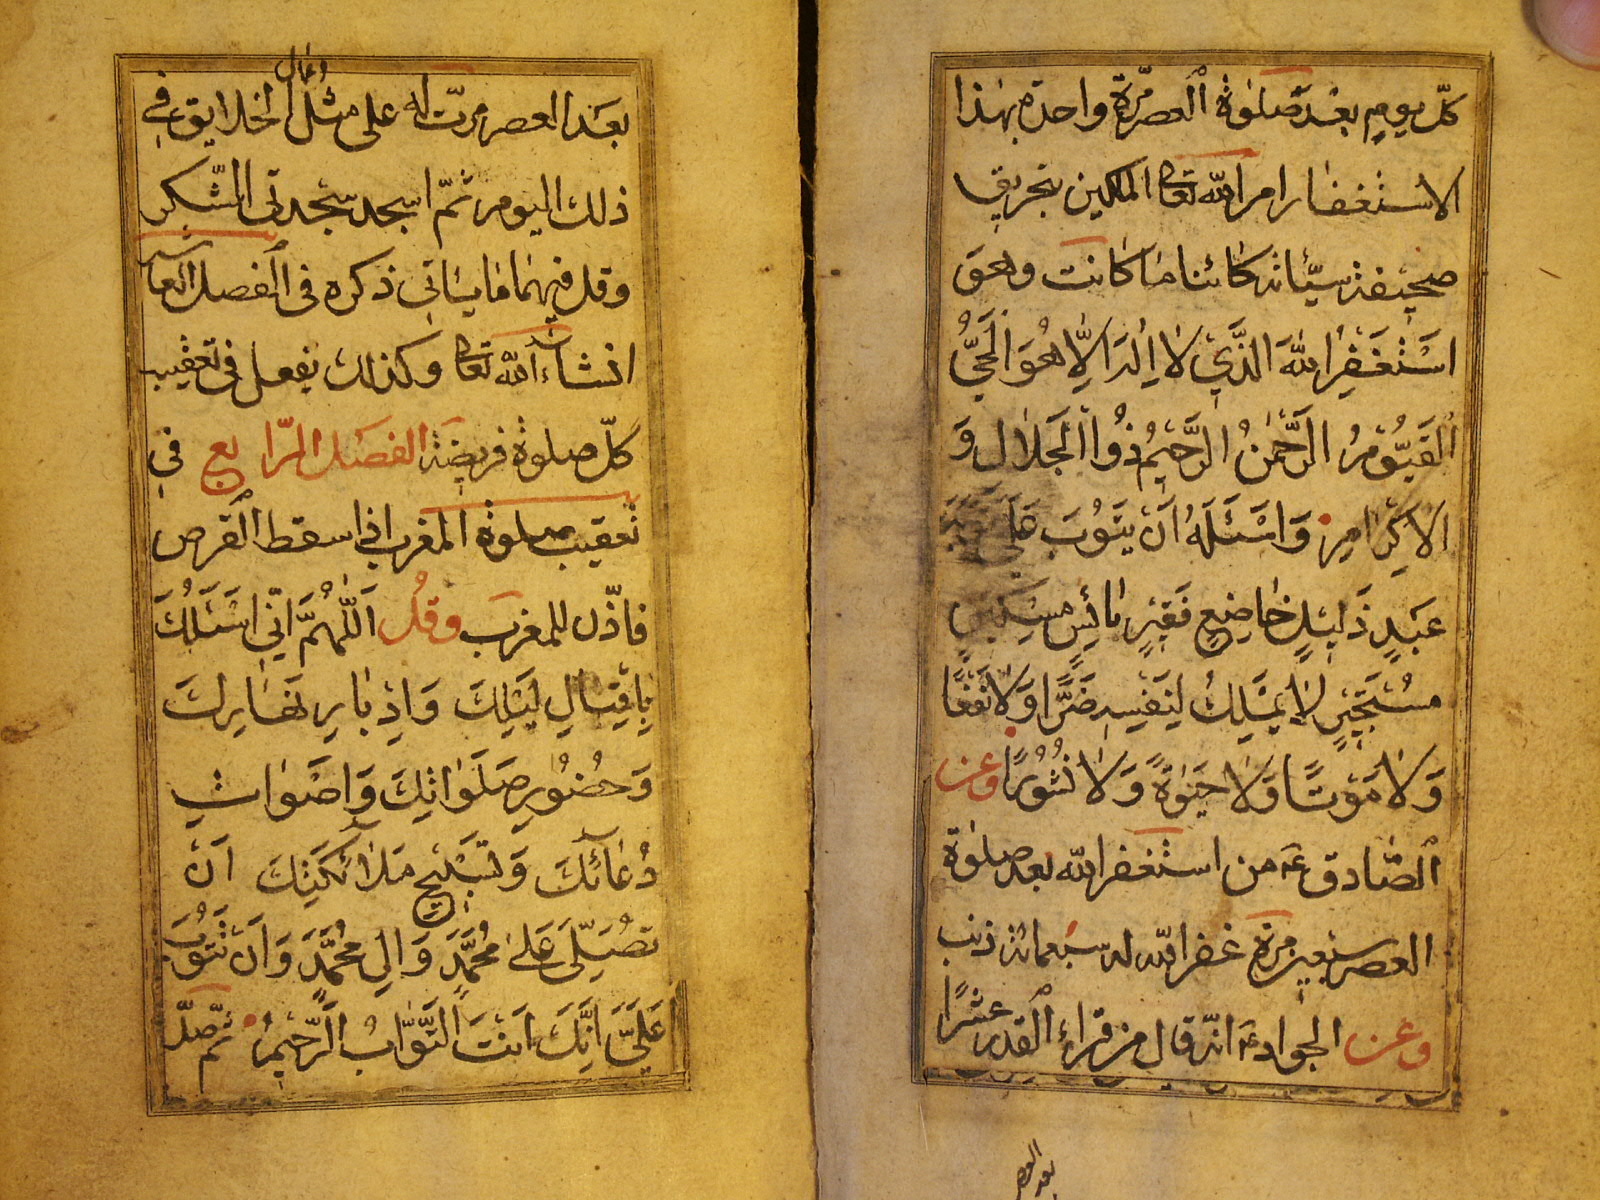 كلّ يوم بعد صلوة العصر مرّة واحدة بهذا
الاستغفار امر الله تعالى الملكين بتحريق
صحيفة سيّئاته كائنا ما كانت وهو
اَسْتَغْفِرُ اللهَ الَّذِي لا اِلٰهَ اِلّا هُوَ الْحَيُّ
الْقَيُّومُ الرَّحْمٰنُ الرَّحِيمُ ذُو الْجَلالِ وَ
الاِكْرامِ وَاَسْئَلُهُ اَنْ يَتُوبَ عَلَيَّ تَوْبَةَ
عَبْدٍ ذَلِيلٍ خاضِعٍ فَقِيرٍ بائِسٍ مِسْكِينٍ
مُسْتَجِيرٍ لا يَمْلِكُ لِنَفْسِهِ ضَرًّا وَلا نَفْعًا
وَلا مَوْتًا وَلا حَيٰوةً وَلا نُشُورًا وعن
الصّادق عَم من استغفر الله بعد صلوة
العصر سبعين مرّة غفر الله له سبعمائة ذنب
وعن الجواد عَم انّه قال من قراء القدر عشرًا
بعد العصر
بعد العصر مرّت له على مثل اعمال الخلايق في
ذلك اليوم ثمّ اسجد سجدتى الشّكر
وقل فيهما ما ياتى ذكره فى الفصل العاشر
انشاء الله تعالى وكذلك يفعل فى تعقيب
كلّ صلوة فريضة الفصل الرّابع في
تعقيب صلوة المغرب اذا سقط القرص
فاذّن للمغرب وقل اَللّٰهُمَّ اِنّى اَسْئَلُكَ
بِاِقْبالِ لَيْلِكَ وَاِدْبارِ نَهارِكَ
وَحُضُورِ صَلَواتِكَ وَاَصْواتِ
دُعائِكَ وَتَسْبِيحِ مَلائِكَتِكَ اَنْ
تُصَلِّىَ عَلىٰ مُحَمَّدٍ وَالِ مُحَمَّدٍ وَاَنْ تَتُوبَ
عَلَىَّ اِنَّكَ اَنْتَ التَّوّابُ الرَّحِيمُ ثمّ صلّ